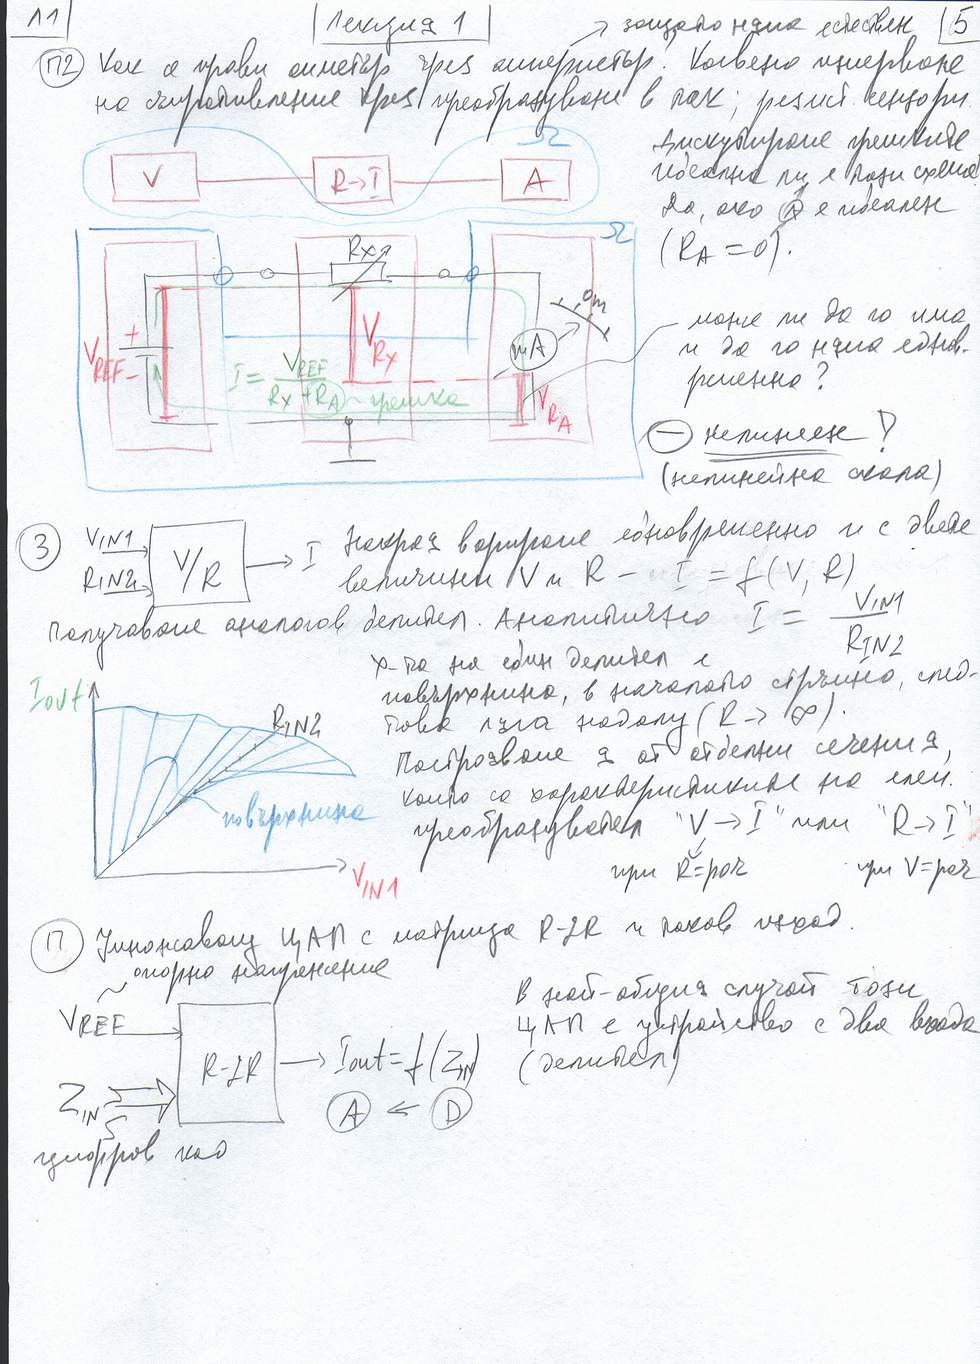 Л1
Лекция 1
5
защото няма естествен
П2 Как се прави омметър чрез амперметър. Косвено измерване
на съпротивление чрез преобразуване в ток; резист. сензори.
Дискутираме грешките
Идеална ли е тази схема
Да, ако А е идеален
(RA = 0).
Ω
V
R→I
A
Ω
Rx
0m
VREF
+
−
VRx
mA
I = VREF / (Rx + RA)
грешка
VRA
може ли да го има
и да го няма еднов-
ременно?
− нелинеен !
(нелинейна скала)
3
VIN1
RIN2
V/R
I
Накрая варираме едновременно и с двете
величини V и R – I = f(V, R)
Получаваме аналогов делител. Аналитично I = VIN1 / RIN2
Х-та на един делител е
повърхнина, в началото стръмно, след
това ляга надолу (R → ∞).
Построяваме я от отделни сечения,
които са характеристиките на елем.
преобразувател "V → I" или "R → I"
при R = const при V = const
Iout
RIN2
повърхнина
VIN1
П Умножаващ ЦАП с матрица R-2R и токов изход.
опорно напрежение
VREF
R-2R
Iout = f(ZIN)
ZIN
A ← D
цифров код
В най-общия случай този
ЦАП е устройство с два входа
(делител)